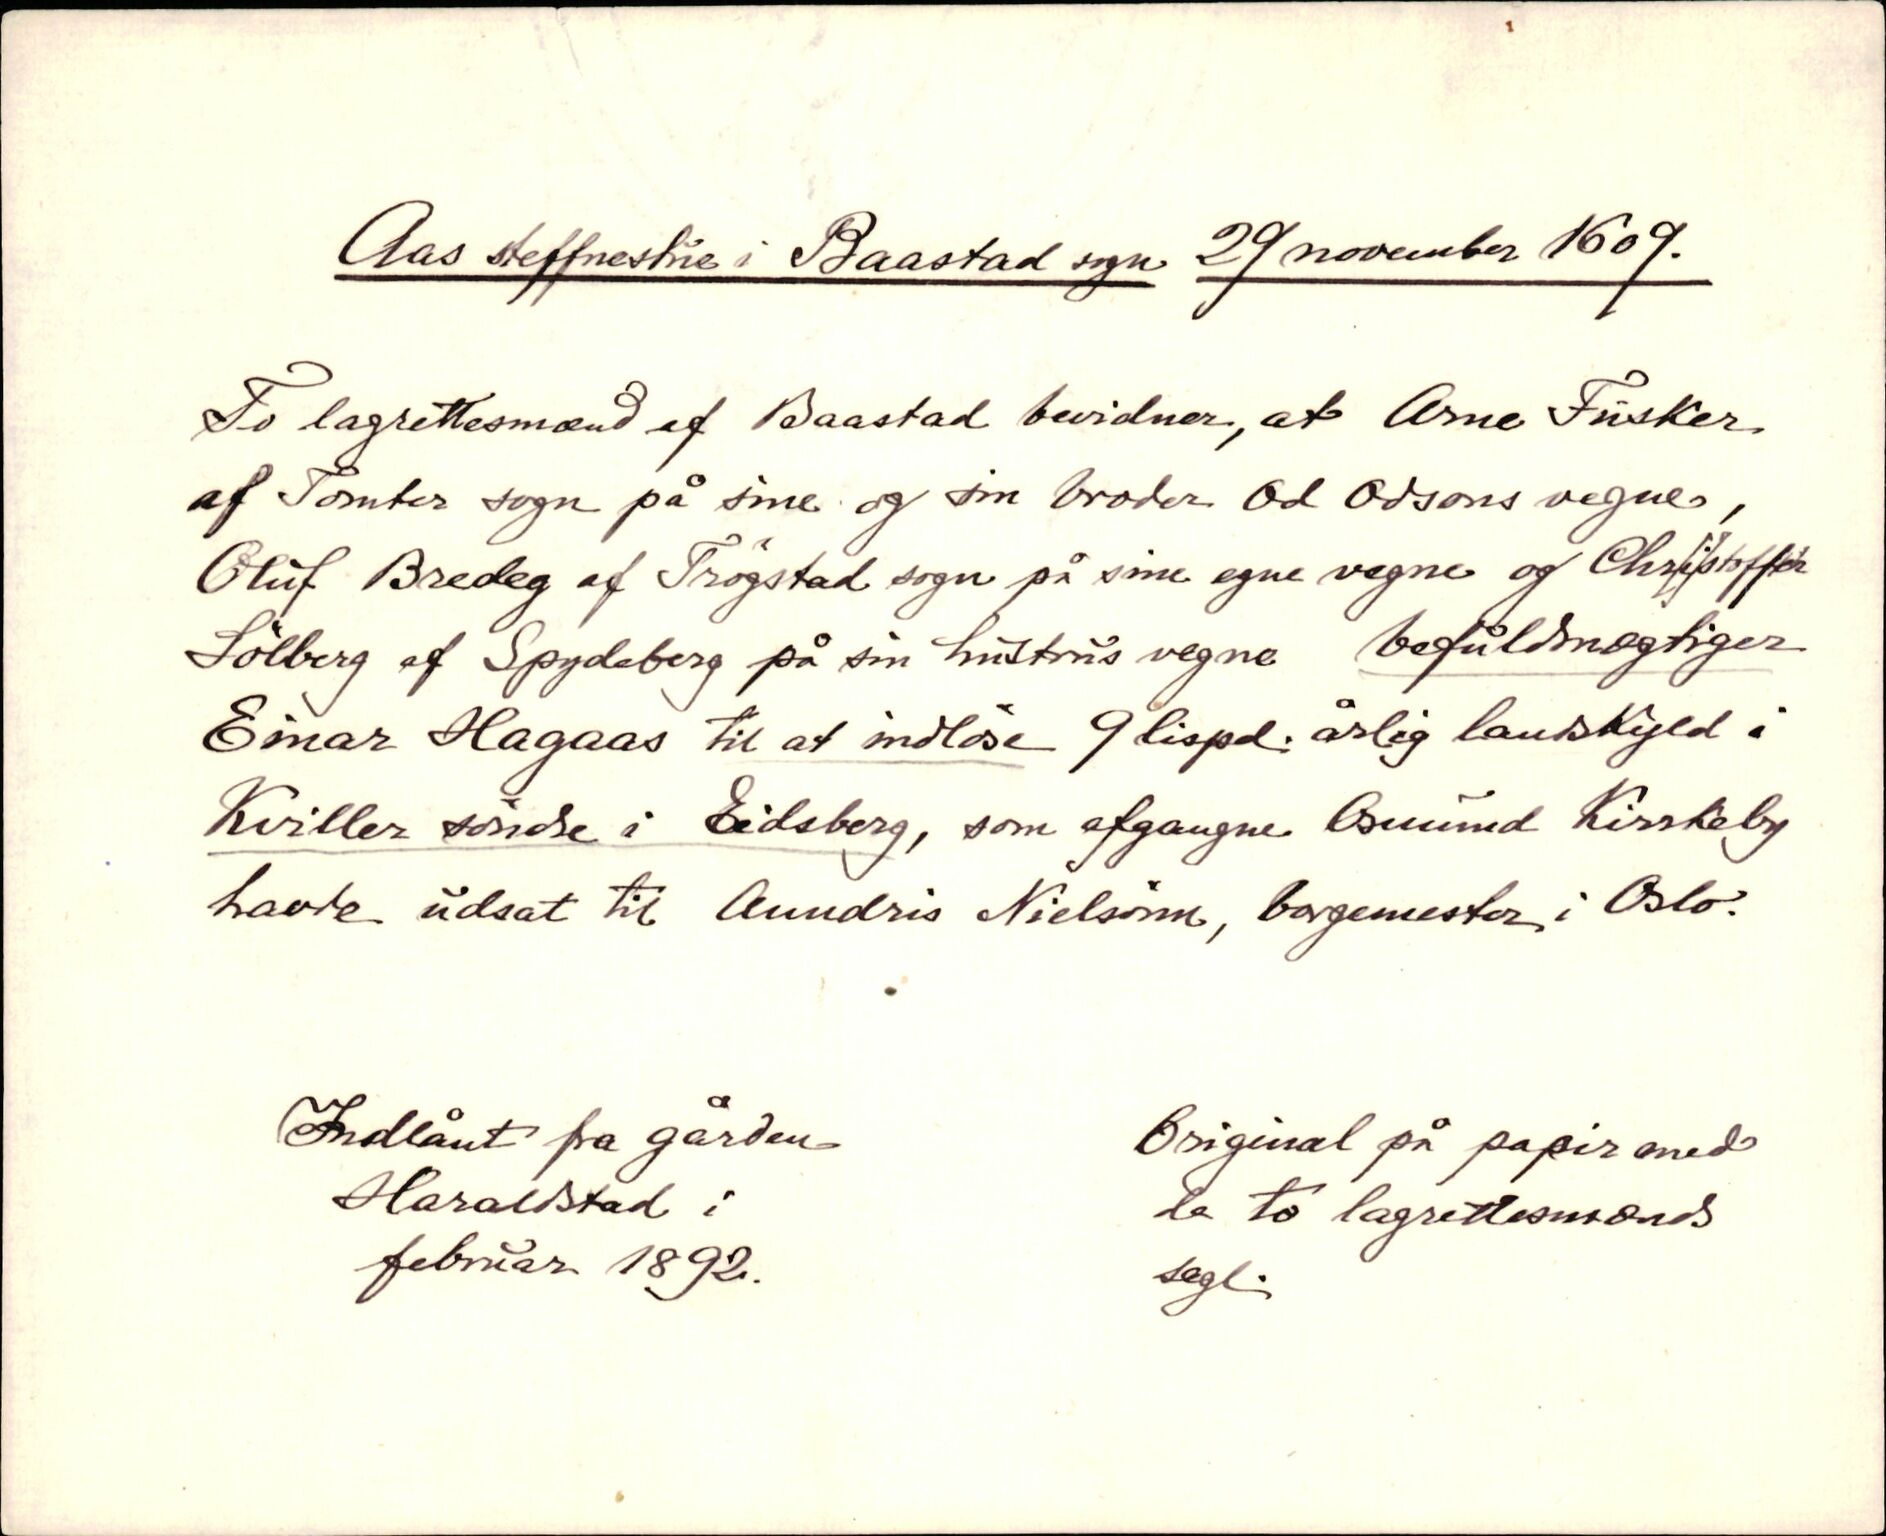 Aas steffnestue i Baastad sogn 29 november 1609.
To lagrettesmænd af Baastad bevidner, at Arne Fusker
af Tomter sogn på sine og sin broder Od Odsøns vegne,
Oluf Bredeg af Trögstad sogn på sine egne vegne og Christoffer
Sölberg af Spydeberg på sin hustrus vegne befuldmægtiger
Einar Hagaas til at indlöse 9 lispd. årlig landskyld i
Kviller söndre i Eidsberg, som afgangne Osmund Kirrkeby
havde udsat til Aundris Nielsönn, borgemester i Oslo.
Indlånt fra gården
Haraldstad i
februar 1892.
Original på papir med
de to lagrettesmænds
segl.